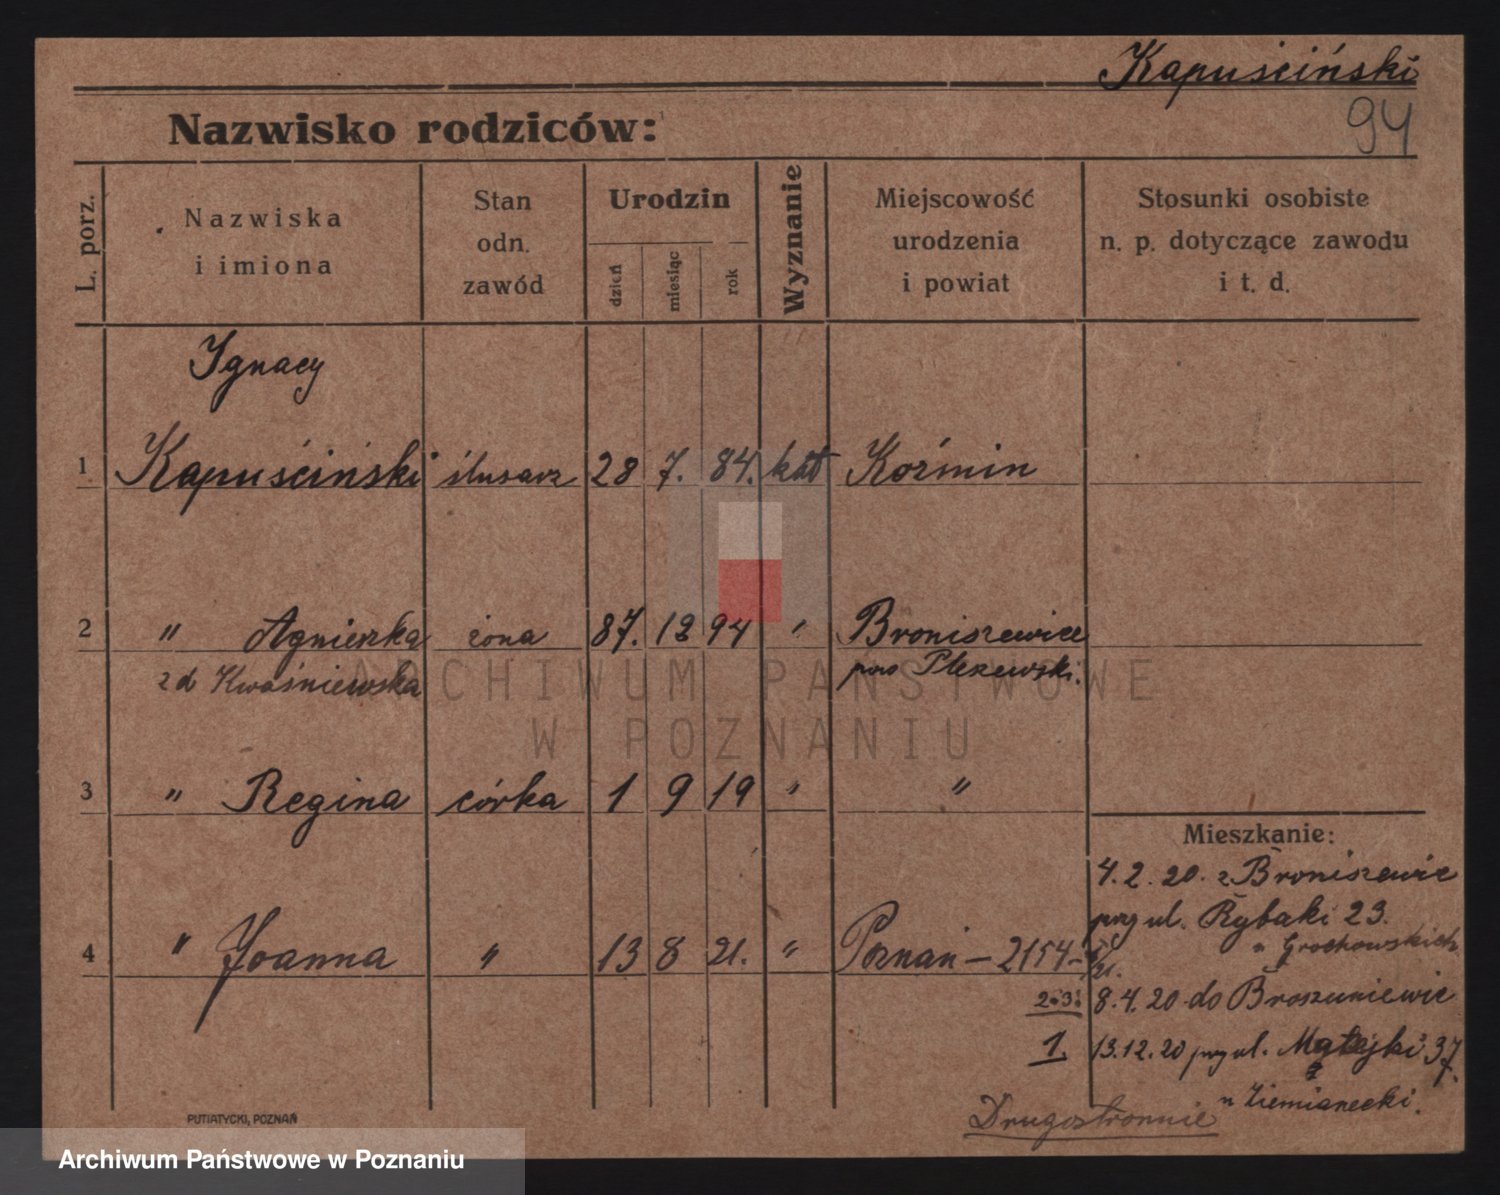 Kapuściński
94
Nazwisko rodziców:
L. porz.
Nazwiska
i imiona
Stan
odn.
zawód
Urodzin
dzień
miesiąc
rok
Wyznanie
Miejscowość
urodzenia
i powiat
Stosunki osobiste
n. p. dotyczące zawodu
i t. d.
Ignacy
1 Kapuściński ślusarz 28 7. 84. kat Koźmin
2 " Agnieszka żona 87. 12 94 " Broniszewice
zd Kwaśniewska pow Pleszewski.
ARCHIWUM PAŃSTWOWE
W POZNANIU
3 " Regina córka 1 9 19 " "
Mieszkanie:
4.2.20. z Broniszewic
przy ul. Rybaki 23.
u Grochowskich
4 " Joanna " 13 8 21. " Poznań – 2154 – 21.
2.3. 8.4.20 do Broszuniewic
1. 13.12.20 przy ul. Matejki 37.
u Ziemianecki.
Drugostronnie
PUTIATYCKI, POZNAŃ
Archiwum Państwowe w Poznaniu